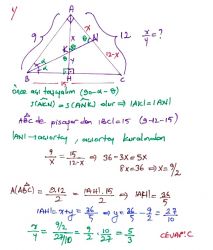 A
9
x
12
x/y = ?
K
N
x
y
12-x
α
α
B
H
C
15
önce açı taşıyalım (90-α-θ)
s(AKN) = s(ANK) olur ⇒ |AK| = |AN|
ABC de pisagordan |BC| = 15 (9-12-15)
|AN| → açıortay, açıortay kuralından
9/x = 15/(12-x) ⇒ 36-3x = 5x
8x = 36 ⇒ x = 9/2
A(ABC) = 9.12/2 = |AH|.15/2 ⇒ |AH| = 36/5
|AH| = x+y = 36/5 ⇒ y = 36/5 - 9/2 = 27/10
x/y = (9/2)/(27/10) = 9/2 . 10/27 = 5/3
CEVAP: C